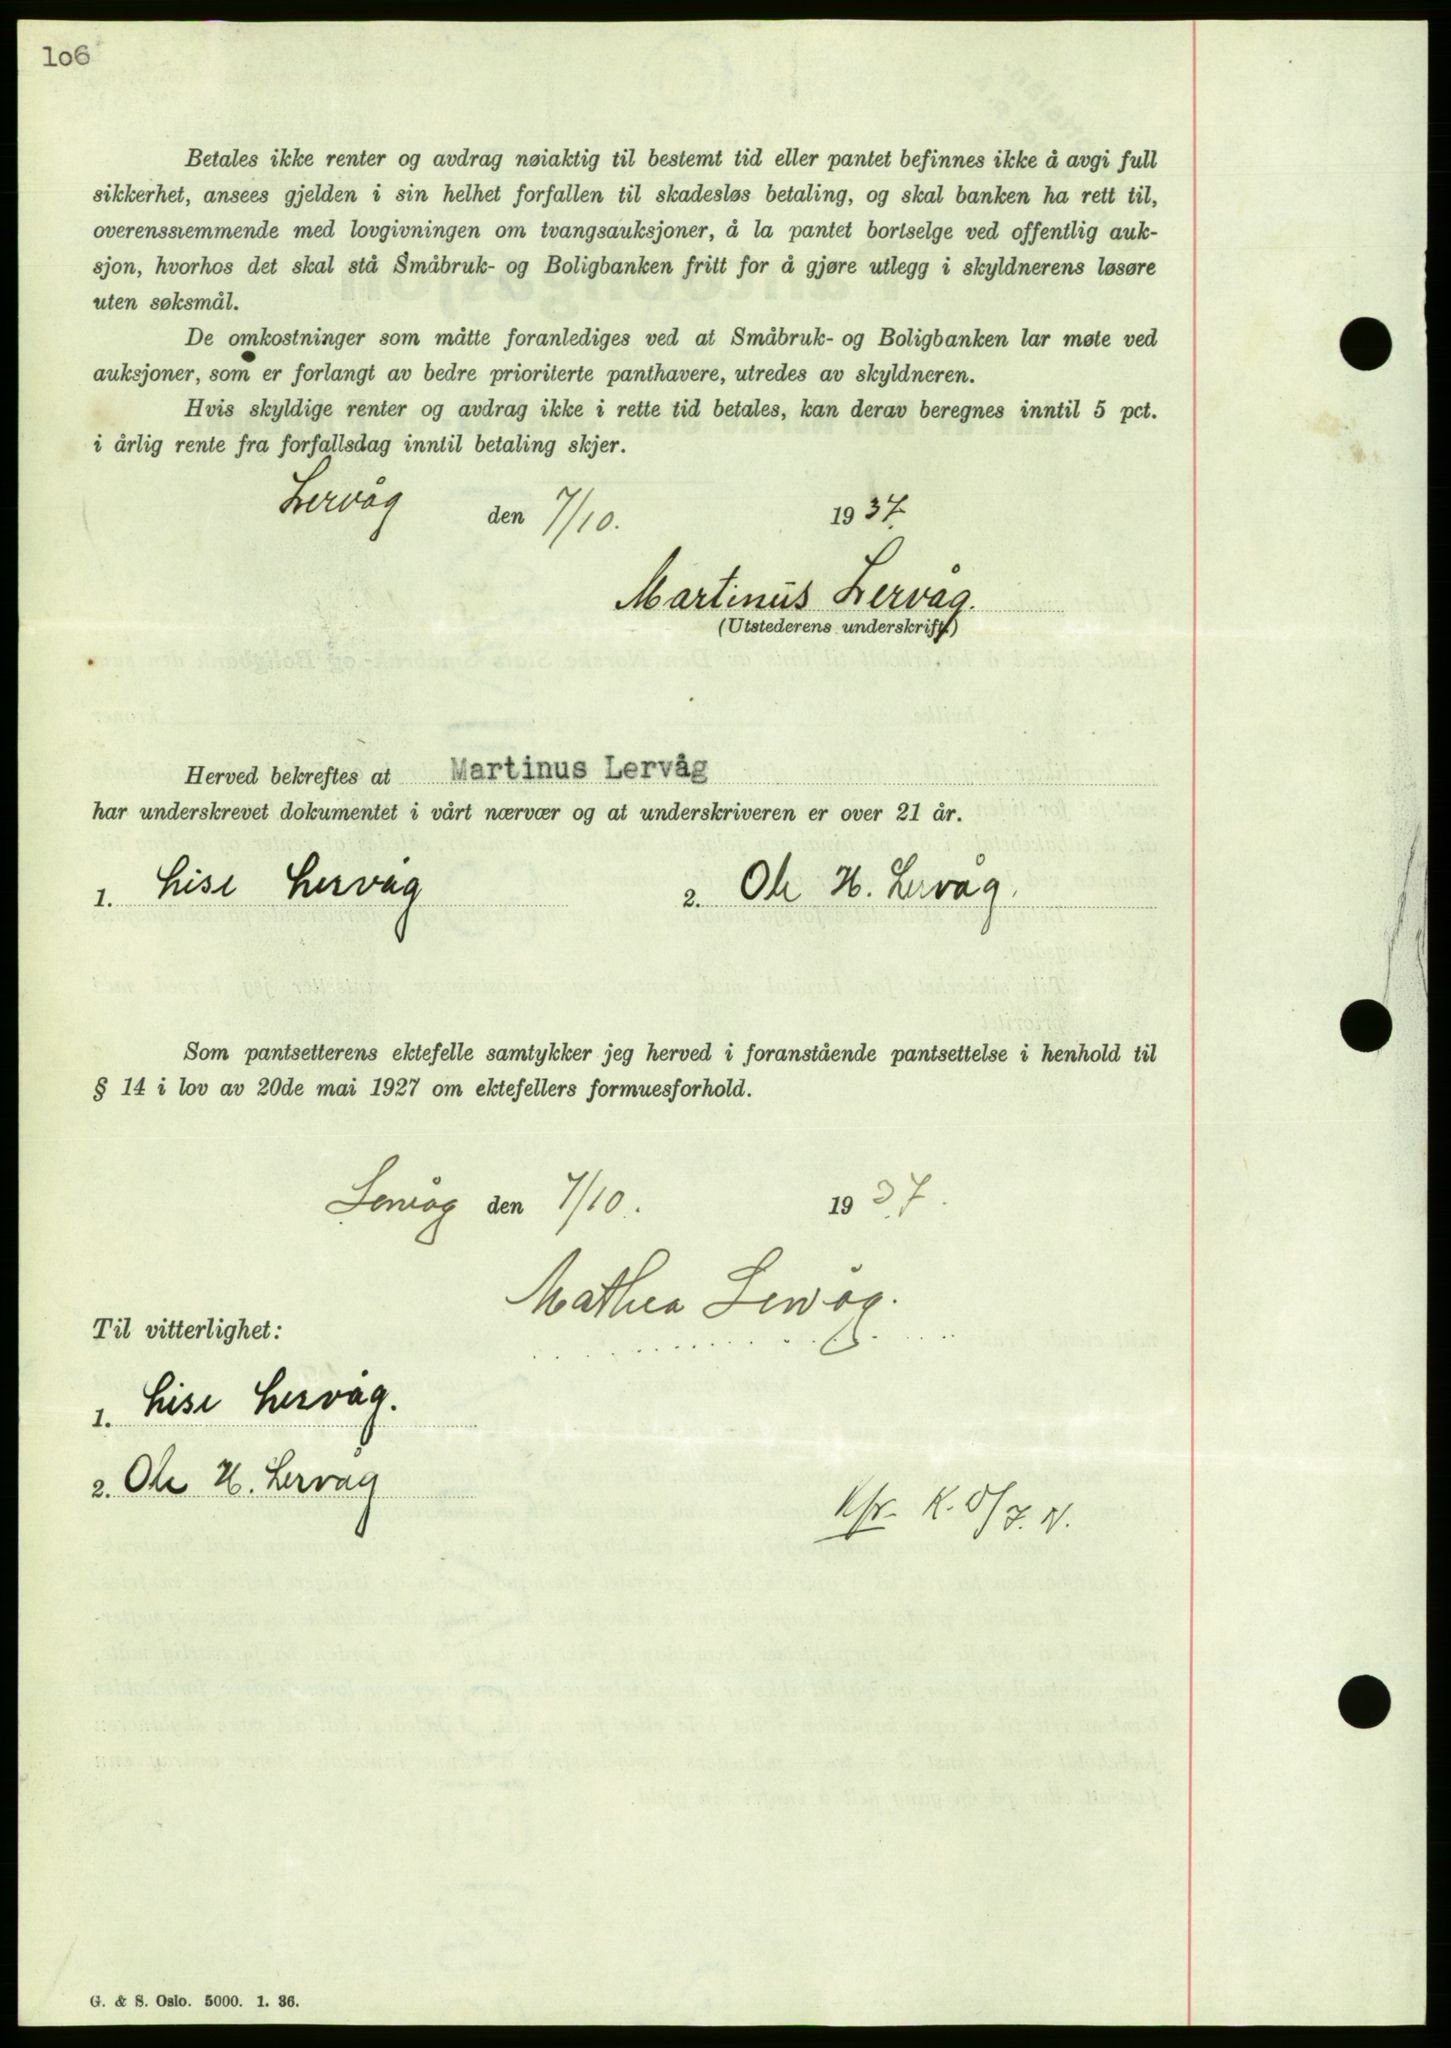 106
Betales ikke renter og avdrag nøiaktig til bestemt tid eller pantet befinnes ikke å avgi full
sikkerhet, ansees gjelden i sin helhet forfallen til skadesløs betaling, og skal banken ha rett til,
overensstemmende med lovgivningen om tvangsauksjoner, å la pantet bortselge ved offentlig auk-
sjon, hvorhos det skal stå Småbruk- og Boligbanken fritt for å gjøre utlegg i skyldnerens løsøre
uten søksmål.
De omkostninger som måtte foranlediges ved at Småbruk- og Boligbanken lar møte ved
auksjoner, som er forlangt av bedre prioriterte panthavere, utredes av skyldneren.
Hvis skyldige renter og avdrag ikke i rette tid betales, kan derav beregnes inntil 5 pct.
i årlig rente fra forfallsdag inntil betaling skjer.
Lervåg den 7/10. 1937.
Martinus Lervåg.
(Utstederens underskrift)
Herved bekreftes at Martinus Lervåg
har underskrevet dokumentet i vårt nærvær og at underskriveren er over 21 år.
1. Lise Lervåg 2. Ole H. Lervåg.
Som pantsetterens ektefelle samtykker jeg herved i foranstående pantsettelse i henhold til
§ 14 i lov av 20de mai 1927 om ektefellers formuesforhold.
Lervåg den 7/10. 1937.
Mathea Lervåg.
Til vitterlighet:
1. Lise Lervåg.
2. Ole H. Lervåg
G. & S. Oslo. 5000. 1. 36.